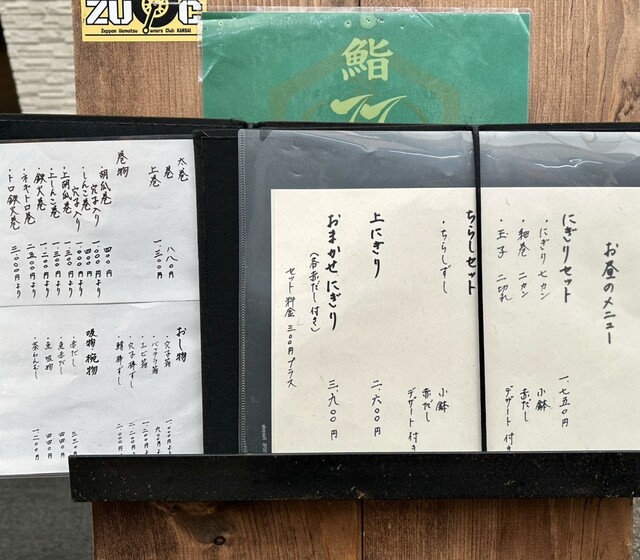 ZUOC
Zeppan Uematsu Owners Club KANSAI
鮨
お昼のメニュー
にぎりセット 一、七五〇円
・にぎり七カン
・細巻 二カン
・玉子 二切れ
小鉢
赤だし
デザート付き
ちらしセット
・ちらしずし
小鉢
赤だし
デザート付き
上にぎり 二、六〇〇円
おまかせにぎり 三、九〇〇円
(各赤だし付き)
セット料金 三〇〇円プラス
太巻 八八〇円
上巻 一、三〇〇円
巻物
・胡瓜巻 四〇〇円
穴子入り 一、〇〇〇円より
・しんこ巻 四〇〇円
・上胡瓜巻
・上しんこ巻
・鉄火巻
・ネギトロ巻
・トロ鉄火巻 三、〇〇〇円より
おし物
・穴子箱
・バッテラ箱
・エビ箱
・穴子棒ずし
・鯖棒ずし
吸物・椀物
・赤だし
・魚赤だし 四四〇円
・魚吸物 四四〇円
・茶わんむし